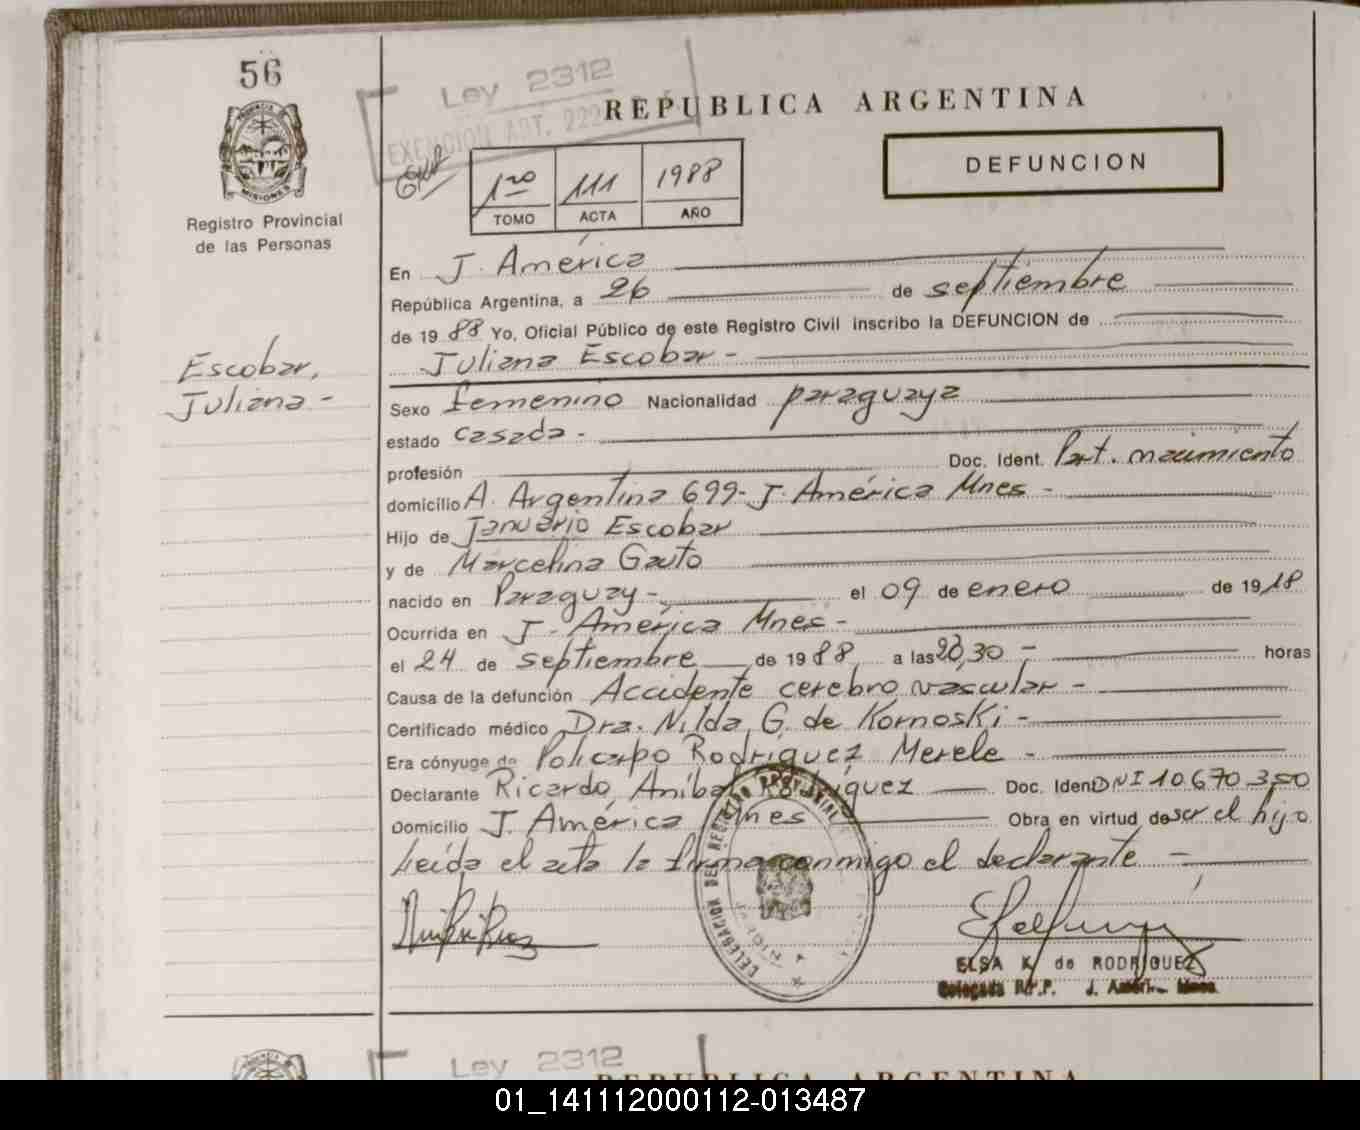 56
Ley 2312
EXENCION ART. 222
REPUBLICA ARGENTINA
DEFUNCION
1ro 111 1988
TOMO ACTA AÑO
PROVINCIA
MISIONES
Registro Provincial
de las Personas
En J. América
República Argentina, a 26 de septiembre
de 1988 Yo, Oficial Público de este Registro Civil inscribo la DEFUNCION de
Juliana Escobar -
Escobar,
Juliana -
Sexo femenino Nacionalidad paraguaya
estado casada -
profesión Doc. Ident. Part. nacimiento
domicilio A. Argentina 699- J. América Mnes -
Hijo de Januario Escobar
y de Marcelina Gauto
nacido en Paraguay - el 09 de enero de 1918
Ocurrida en J. América Mnes -
el 24 de septiembre de 1988 a las 20,30 - horas
Causa de la defunción Accidente cerebro vascular -
Certificado médico Dra. Nilda G. de Kornoski -
Era cónyuge de Policarpo Rodríguez Merele -
Declarante Ricardo Aníbal Rodríguez Doc. Ident DNI 10.670.350
Domicilio J. América Mnes Obra en virtud de ser el hijo
Leída el acta la firma conmigo el declarante -
DELEGACION DEL REGISTRO PROVINCIAL
ELSA K. de RODRIGUEZ
Delegada R.P.P. J. América Mnes
Ley 2312
REPUBLICA ARGENTINA
01_141112000112-013487